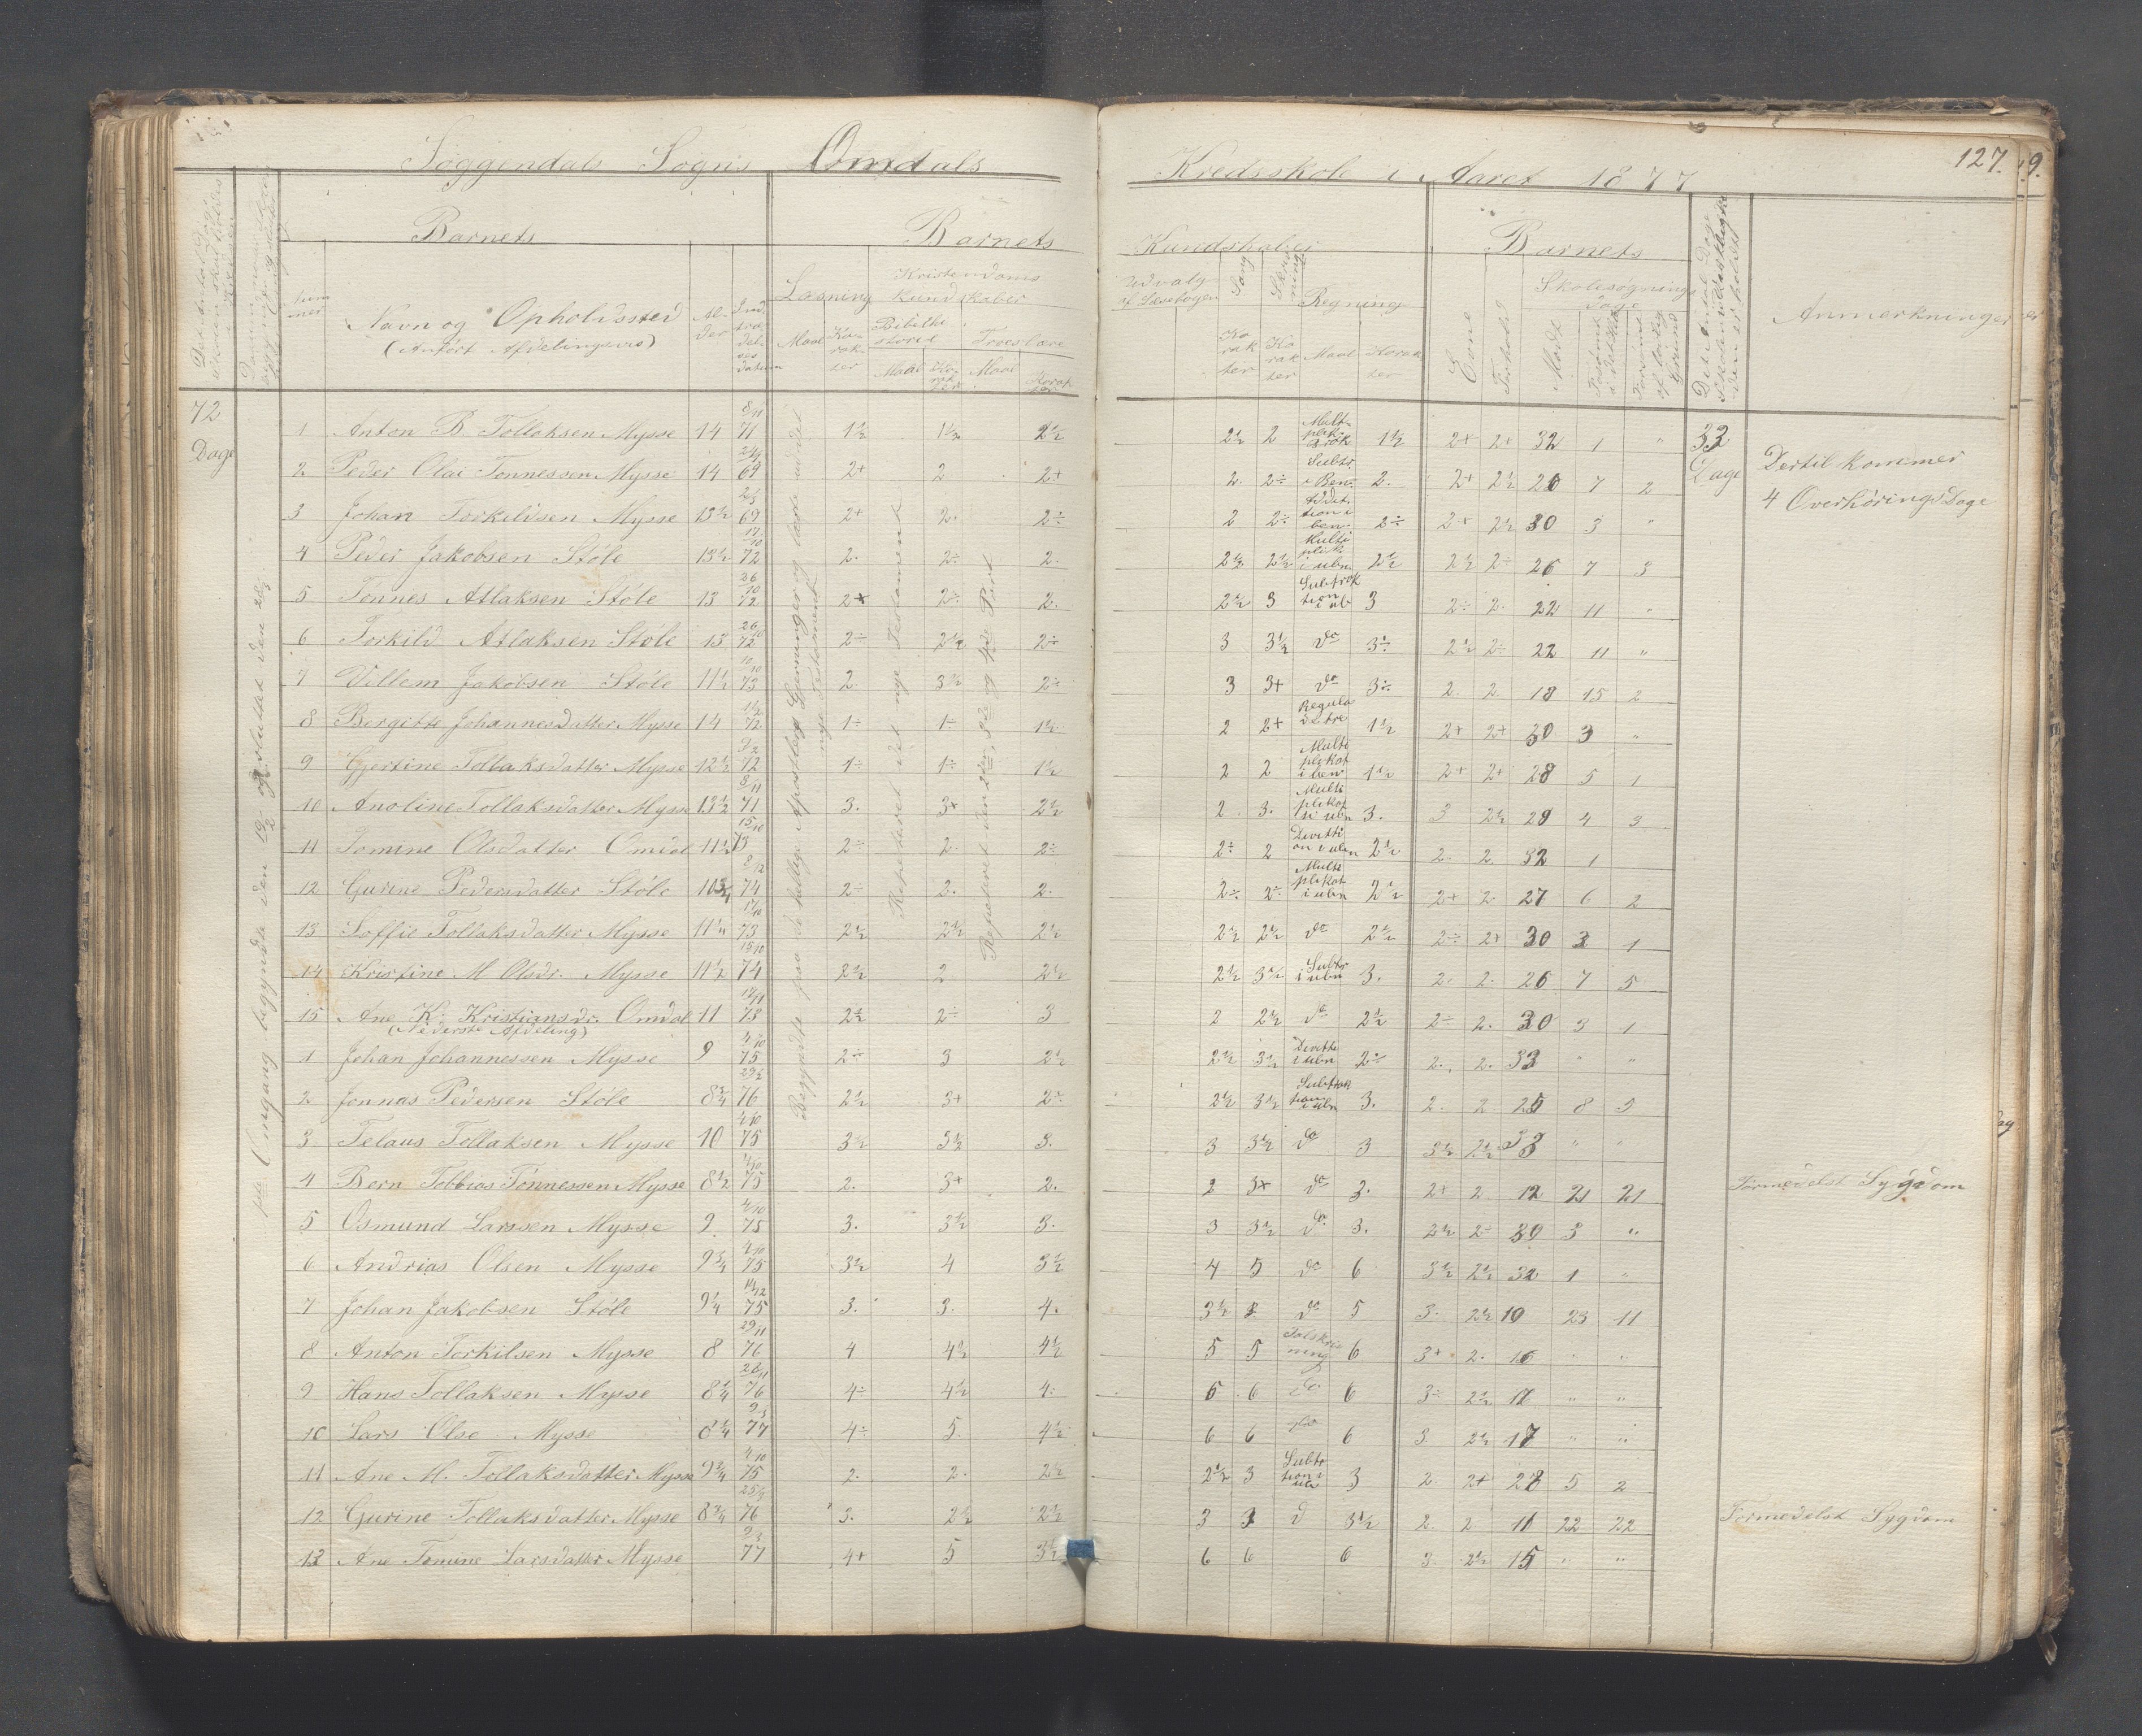 Soggendals Sogns Omdals Kredsskole i Aaret 1877
127.
9.
Barnets
Barnets Kundskaber
Barnets
Nummer
Navn og Opholdssted
(Anført Afdelingsvis)
Alder
Indtrædelsesdatum
Læsning
Maal
Karakter
Kristendoms Kundskaber
Bibelhistorie
Maal
Karakter
Troeslære
Maal
Karakter
Udvalg af Læsebogen
Karakter
Sang
Karakter
Skrivning
Regning
Maal
Karakter
Evne
Forhold
Skolesøgningsdage
Mødt
Forsømt i det Hele
Forsømt af lovlig Grund
Anmerkninger
72 Dage
1ste Omgang begyndte den 19/2 og sluttet den 28/3
Begyndte paa de hellige Apostlers Gjerninger og læste ud det nye Testament
Repeteret det nye Testament
Repeteret den 2den, 3de og 4de Part
1 Anton B. Tollaksen Mysse 14 8/11 71 1½ 1½ 2½ 2½ 2 1½ 2+ 2+ 32 1 " 33 Dage
2 Peder Olai Tønnessen Mysse 14 69 2+ 2 2+ 2. 2÷ Subtr. i Ben. 2. 2+ 2½ 26 7 2 Dertil kommer
4 OverhøringsDage
3 Johan Torkildsen Mysse 13½ 69 2+ 2. 2÷ 2 2÷ Addition i ben. 2÷ 2+ 2½ 30 3 "
4 Peder Jakobsen Støle 13½ 17/10 72 2. 2÷ 2. 2½ 2½ Multiplik. i ubn. 2½ 2½ 2÷ 26 7 3
5 Tønnes Atlaksen Støle 13 26/10 72 2+ 2÷ 2. 2½ 3 Subtraktion i ub 3 2÷ 2. 22 11 "
6 Torkild Atlaksen Støle 13 26/10 72 2÷ 2½ 2÷ 3 3½ do 3÷ 2½ 2÷ 22 11 "
7 Villem Jakobsen Støle 11½ 10/10 73 2 3½ 2÷ 3 3+ do 3÷ 2. 2. 18 15 2
8 Bergitte Johannesdatter Mysse 14 72 1÷ 1÷ 1½ 2 2+ Regula detre 1½ 2+ 2+ 30 3 "
9 Gjertine Tollaksdatter Mysse 12½ 72 1÷ 1÷ 1½ 2 2 Multiplikat i ben 1½ 2+ 2+ 28 5 1
10 Anoline Tollaksdatter Mysse 13½ 8/11 71 3. 3+ 2½ 2 3. Multiplikat i ubn 3. 3 2½ 29 4 3
11 Tomine Olsdatter Omdal 11½ 15/10 73 2÷ 2. 2÷ 2÷ 2 Divition i ubn 2½ 2. 2 32 1
12 Gurine Pedersdatter Støle 10¾ 74 2÷ 2. 2. 2÷ 2÷ Multiplikat i ubn 2½ 2+ 2 27 6 2
13 Soffie Tollaksdatter Mysse 11¼ 17/10 73 2½ 2½ 2½ 2½ 2½ do 2½ 2÷ 2+ 30 3 1
14 Kristine M Olsdr. Mysse 11½ 15/10 74 2½ 2 2½ 2½ 3½ Subtr i ubn 3. 2. 2. 26 7 5
15 Ane K. Kristiansdr. Omdal 11 17/11 73 2½ 2÷ 3 2 2½ do 2½ 2÷ 2. 30 3 1
(Nederste Afdeling)
1 Johan Johannessen Mysse 9 4/10 75 2÷ 3 2½ 2½ 3½ i ubn 2÷ 2. 2. 33 " "
2 Jonnas Pedersen Støle 8¾ 76 2½ 3+ 2÷ 2½ 3½ Subtraktion i ubn 3. 2. 2 25 8 5
3 Telaus Tollaksen Mysse 10 4/10 75 3½ 3½ 3. 3 3½ do 3 3½ 2½ 33 " "
4 Bern Tobbias Tønnessen Mysse 8½ 4/10 75 2. 3+ 2. 2 3+ do 3. 2+ 2 12 21 21 Formedelst Sygdom
5 Osmund Larssen Mysse 9 4/10 75 3. 3½ 3. 3 3½ do 3. 2½ 2÷ 30 3 "
6 Andrias Olsen Mysse 9¾ 4/10 75 3½ 4 3½ 4 5 do 6 3½ 2½ 32 1 "
7 Johan Jakobsen Støle 9¼ 14/12 75 3. 3. 4. 3½ do 5 3. 2½ 10 23 11
8 Anton Torkilsen Mysse 8 29/11 76 4 4½ 4½ 5 5 Talskrivning 6 3+ 2. 16 " "
9 Hans Tollaksen Mysse 8¼ 26/11 76 4÷ 4½ 4÷ 6 6 do 6 3÷ 2½ 17 " "
10 Lars Olse Mysse 8¼ 9/3 77 4÷ 5. 4½ 6 6 do 6 3 2½ 17 " "
11 Ane M. Tollaksdatter Mysse 9¾ 4/10 75 2. 2. 2½ 2½ 3 Subtrtion i ub 3 2 2+ 28 5 2
12 Gurine Tollaksdatter Mysse 8¾ 76 3. 2½ 2½ 3 3 d 3½ 2. 2 11 22 22 Formedelst Sygdom
13 Ane Tomine Larsdatter Mysse 9/3 77 4+ 5 3½ 6 6 6 3. 2½ 15 " "